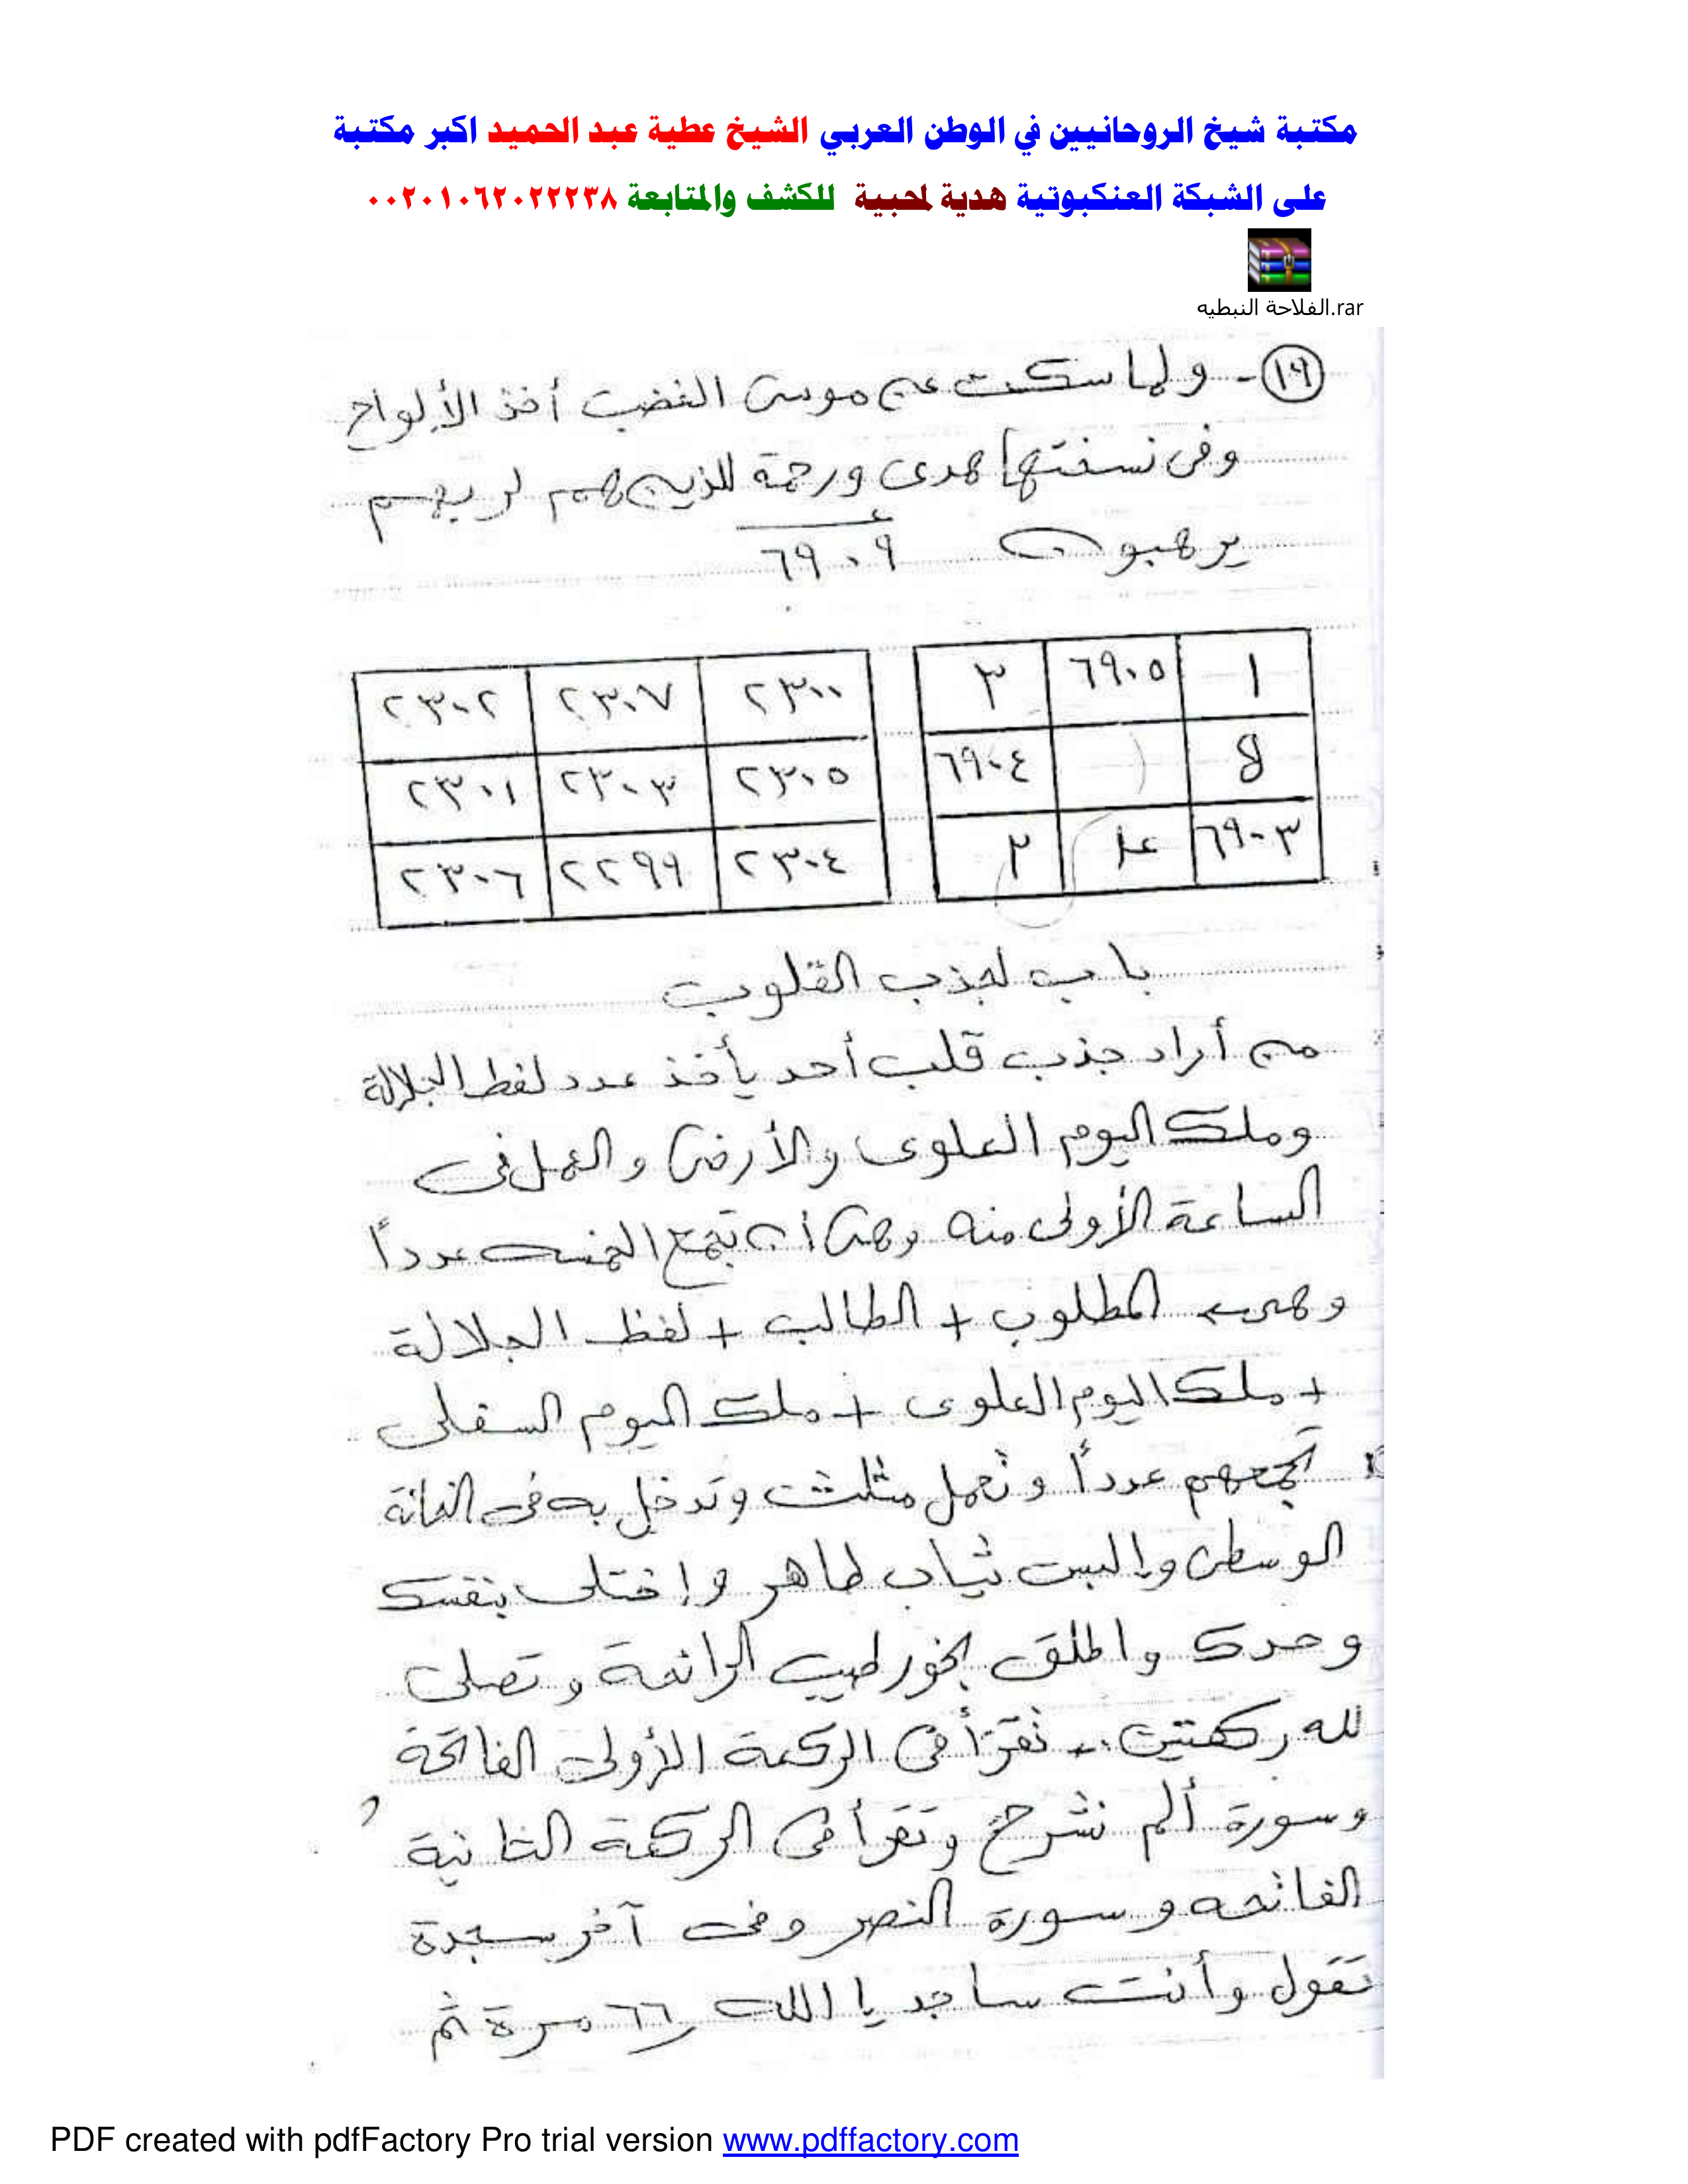 مكتبة شيخ الروحانيين في الوطن العربي الشيخ عطية عبد الحميد اكبر مكتبة
على الشبكة العنكبوتية هدية لمحبية للكشف والمتابعة ٠٠٢٠١٠٦٢٠٢٢٢٣٨
الفلاحة النبطيه.rar
(١٩)- ولما سكت عن موسى الغضب أخذ الألواح
وفى نسختها هدى ورحمة للذين هم لربهم
يرهبون ٦٩٠٩
١ ٦٩٠٥ ٣
٨ ٦٩٠٤
٦٩٠٣ ٤ ٢
٢٣٠٠ ٢٣٠٧ ٢٣٠٢
٢٣٠٥ ٢٣٠٣ ٢٣٠١
٢٣٠٤ ٢٢٩٩ ٢٣٠٦
باب لجذب القلوب
من أراد جذب قلب أحد يأخذ عدد لفظ الجلالة
وملك اليوم العلوى والأرضى والعمل فى
الساعة الأولى منه وهى أن تجمع الخمسه عدداً
وهى المطلوب + الطالب + لفظ الجلالة
+ ملك اليوم العلوى + ملك اليوم السفلى
تجمعهم عدداً وتعمل مثلث وتدخل به فى الخانة
الوسطى وإلبس ثياب طاهر وإختلى بنفسك
وحدك واطلق بخور طيب الرائحة وتصلى
لله ركعتين - تقرأ فى الركعة الأولى الفاتحة
وسورة ألم نشرح وتقرأ فى الركعة الثانية
الفاتحه وسورة النصر وفى آخر سجدة
تقول وأنت ساجد يا الله ٦٦ مرة ثم
PDF created with pdfFactory Pro trial version www.pdffactory.com